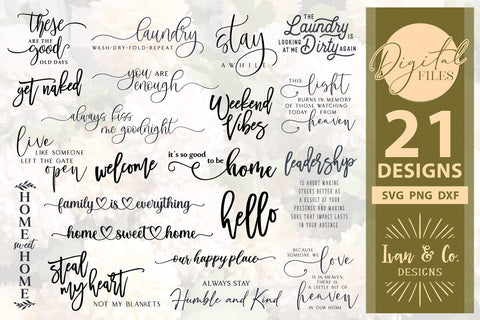 these
ARE THE
good
OLD DAYS
laundry
WASH-DRY-FOLD-REPEAT
stay
AWHILE
THE
Laundry
IS
LOOKING
AT ME
Dirty
AGAIN
get naked
you are
enough
Weekend
Vibes
THIS light
BURNS IN MEMORY
OF THOSE WATCHING
TODAY FROM
heaven
always kiss
me goodnight
live
LIKE SOMEONE
LEFT THE GATE
open
welcome
it's so good to be home
leadership
IS ABOUT MAKING
OTHERS BETTER AS
A RESULT OF YOUR
PRESENCE AND MAKING
SURE THAT IMPACT LASTS
IN YOUR ABSENCE.
HOME sweet HOME
family is everything
home sweet home
hello
steal
my heart
NOT MY BLANKETS
our happy place
ALWAYS STAY
Humble and Kind
BECAUSE
SOMEONE WE
love
IS IN HEAVEN,
THERE IS
A LITTLE BIT OF
heaven
IN OUR HOME
Digital
FILES
21
DESIGNS
SVG PNG DXF
Ivan & Co.
DESIGNS